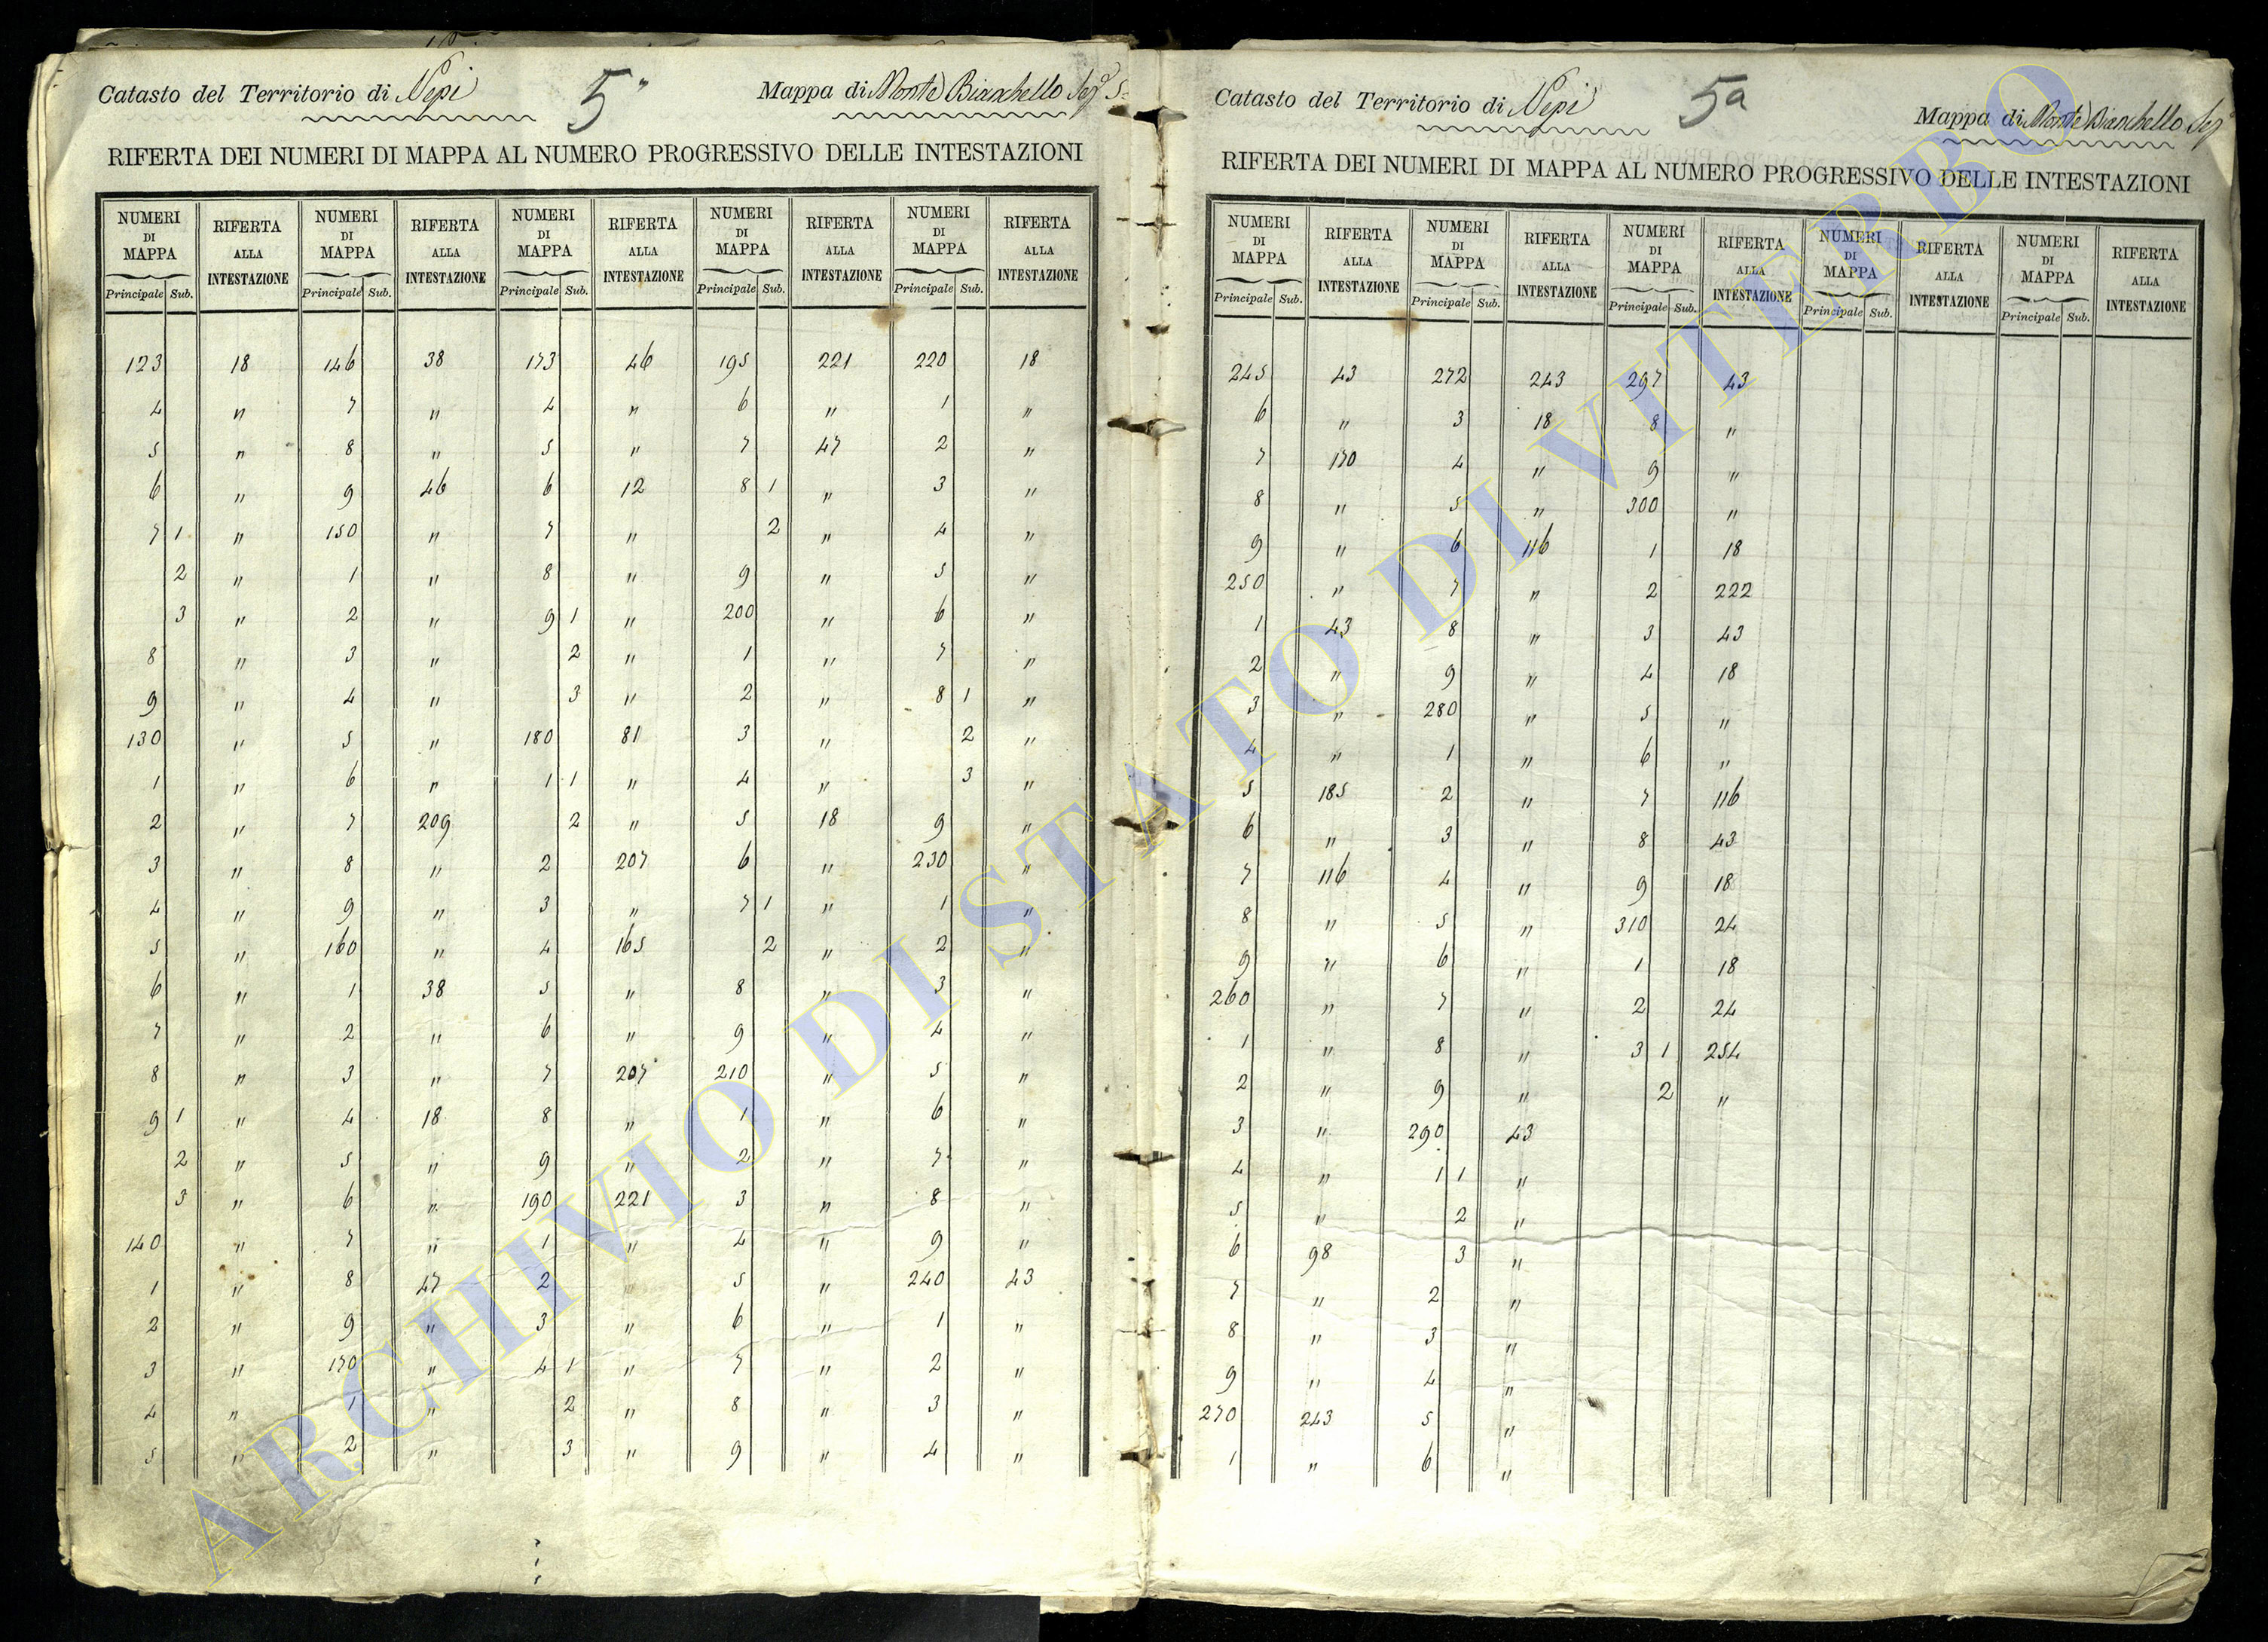 Catasto del Territorio di Nepi 5ª Mappa di Monte Bianchello Sezᵉ 5ª
RIFERTA DEI NUMERI DI MAPPA AL NUMERO PROGRESSIVO DELLE INTESTAZIONI
NUMERI DI MAPPA RIFERTA ALLA INTESTAZIONE NUMERI DI MAPPA RIFERTA ALLA INTESTAZIONE NUMERI DI MAPPA RIFERTA ALLA INTESTAZIONE NUMERI DI MAPPA RIFERTA ALLA INTESTAZIONE NUMERI DI MAPPA RIFERTA ALLA INTESTAZIONE
Principale Sub. Principale Sub. Principale Sub. Principale Sub. Principale Sub.
123 18 146 38 173 46 195 221 220 18
4 " 7 " 4 " 6 " 1 "
5 " 8 " 5 " 7 47 2 "
6 " 9 46 6 12 8 1 " 3 "
7 1 " 150 " 7 " 2 " 4 "
2 " 1 " 8 " 9 " 5 "
3 " 2 " 9 1 " 200 " 6 "
8 " 3 " 2 " 1 " 7 "
9 " 4 " 3 " 2 " 8 1 "
130 " 5 " 180 81 3 " 2 "
1 " 6 " 1 1 " 4 " 3 "
2 " 7 209 2 " 5 18 9 "
3 " 8 " 2 207 6 " 230 "
4 " 9 " 3 " 7 1 " 1 "
5 " 160 " 4 165 2 " 2 "
6 " 1 38 5 " 8 " 3 "
7 " 2 " 6 " 9 " 4 "
8 " 3 " 7 207 210 " 5 "
9 1 " 4 18 8 " 1 " 6 "
2 " 5 " 9 " 2 " 7 "
3 " 6 " 190 221 3 " 8 "
140 " 7 " 1 " 4 " 9 "
1 " 8 47 2 " 5 " 240 43
2 " 9 " 3 " 6 " 1 "
3 " 170 " 4 1 " 7 " 2 "
4 " 1 " 2 " 8 " 3 "
5 " 2 " 3 " 9 " 4 "
Catasto del Territorio di Nepi 5ª Mappa di Monte Bianchello Sezᵉ
RIFERTA DEI NUMERI DI MAPPA AL NUMERO PROGRESSIVO DELLE INTESTAZIONI
NUMERI DI MAPPA RIFERTA ALLA INTESTAZIONE NUMERI DI MAPPA RIFERTA ALLA INTESTAZIONE NUMERI DI MAPPA RIFERTA ALLA INTESTAZIONE NUMERI DI MAPPA RIFERTA ALLA INTESTAZIONE NUMERI DI MAPPA RIFERTA ALLA INTESTAZIONE
Principale Sub. Principale Sub. Principale Sub. Principale Sub. Principale Sub.
245 43 272 243 297 43
6 " 3 18 8 "
7 170 4 " 9 "
8 " 5 " 300 "
9 " 6 116 1 18
250 " 7 " 2 222
1 43 8 " 3 43
2 " 9 " 4 18
3 " 280 " 5 "
4 " 1 " 6 "
5 185 2 " 7 116
6 " 3 " 8 43
7 116 4 " 9 18
8 " 5 " 310 24
9 " 6 " 1 18
260 " 7 " 2 24
1 " 8 " 3 1 254
2 " 9 " 2 "
3 " 290 43
4 " 1 1 "
5 " 2 "
6 98 3 "
7 " 2 "
8 " 3 "
9 " 4 "
270 243 5 "
1 " 6 "
ARCHIVIO DI STATO DI VITERBO